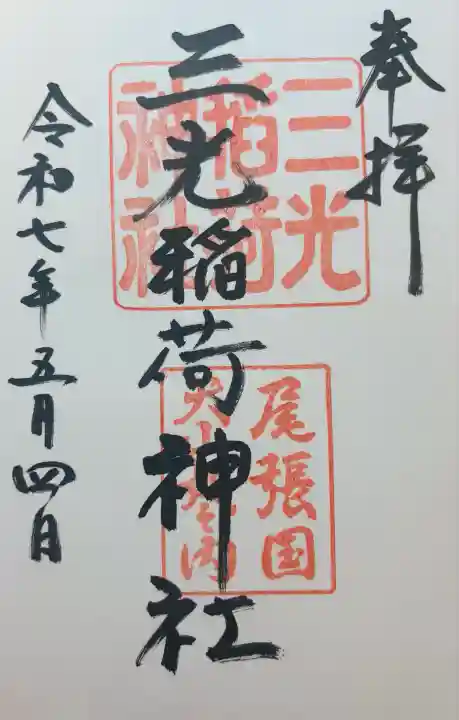 奉拝
三光稲荷神社
三光
稲荷
神社
尾張国
犬山城内
令和七年五月四日